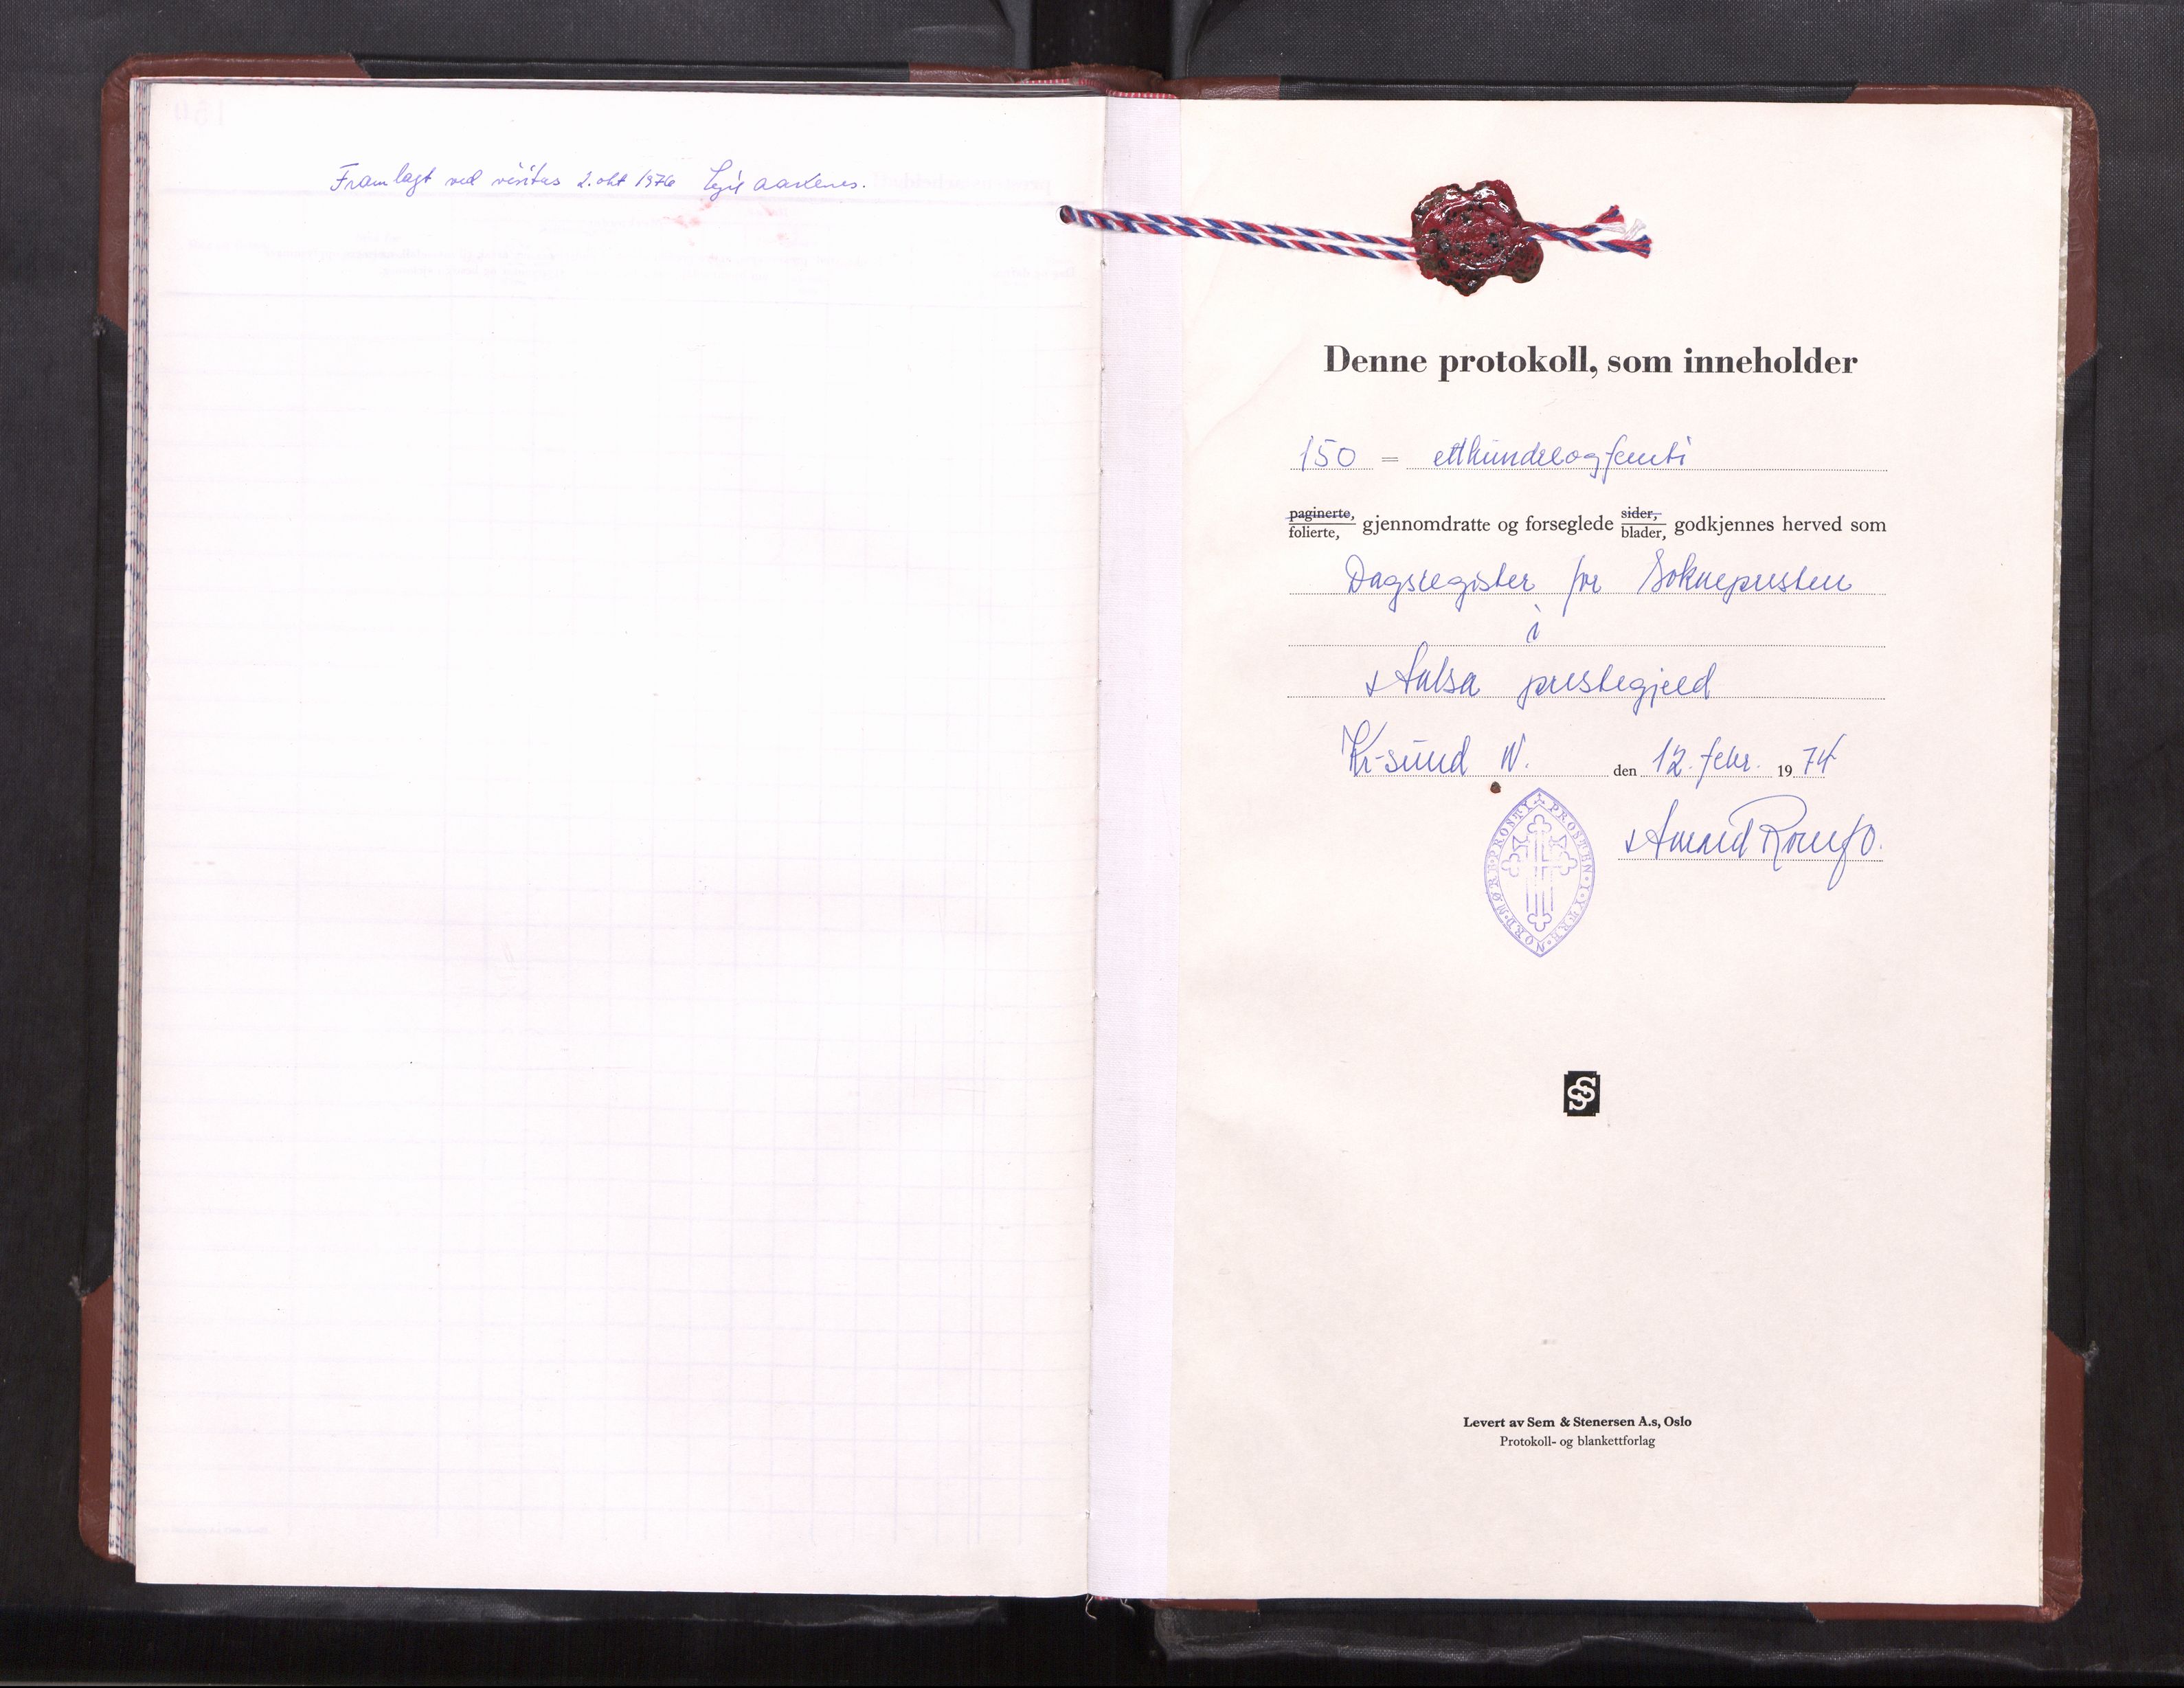 Framlagt ved visitas 2. okt 1976
Denne protokoll, som inneholder
150 = etthundreogfemti
paginerte,
folierte, gjennomdratte og forseglede sider,
blader, godkjennes herved som
Dagsregister for Soknepresten
i
Halsa prestegjeld
Kr-sund N. den 12. febr. 1974
PROSTEN · I · YTRE · NORDMØRE · PROSTI
SS
Levert av Sem & Stenersen A.s, Oslo
Protokoll- og blankettforlag